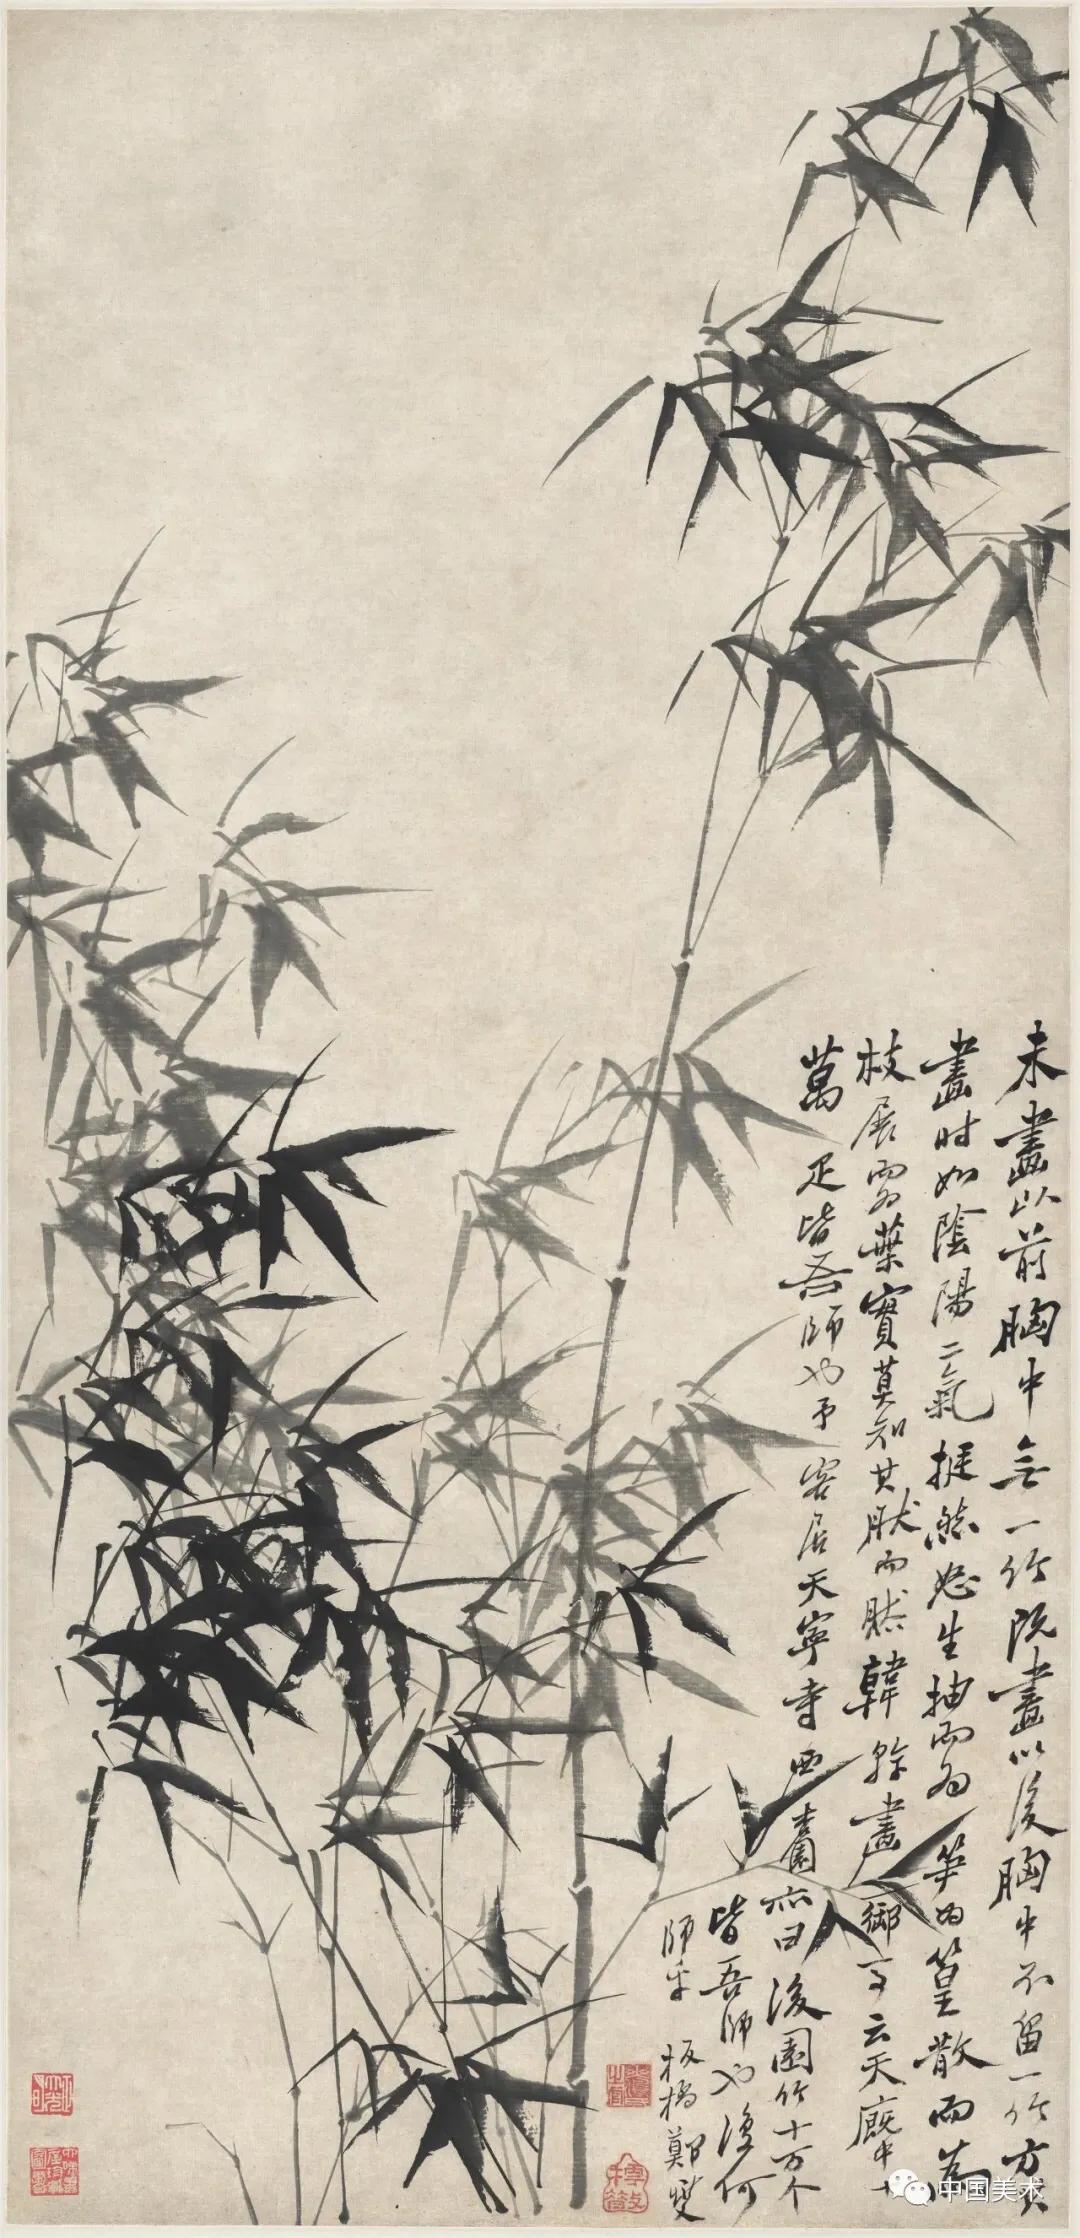 未畫以前胸中無一竹既畫以後胸中不留一竹方其
畫時如陰陽二氣挺然怒生抽而為筍為篁散而為
枝展而為葉實莫知其然而然韓幹畫御馬云天廐中十
萬疋皆吾師也予客居天寧寺西杏園亦曰後園竹十万个
皆吾師也復何
師乎 板橋鄭燮
中国美术